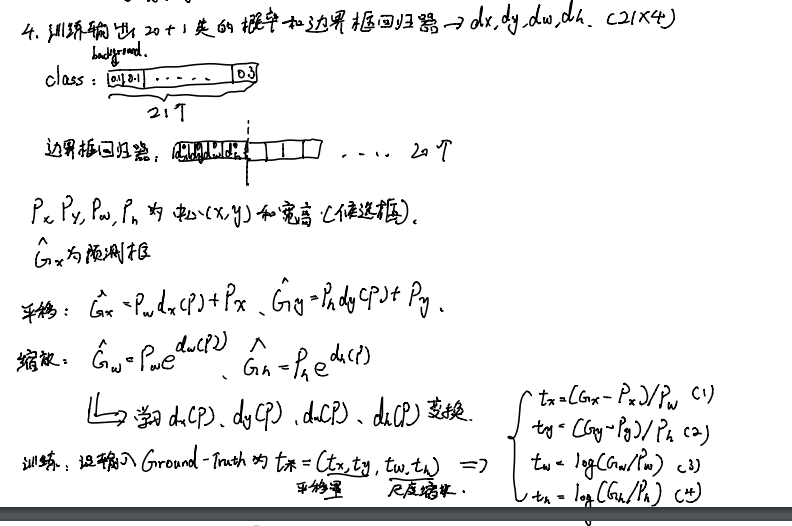 4. 训练输出 20+1 类的概率和边界框回归器→dx,dy,dw,dh. (21×4)
background.
class: 0.1 0.1 ..... 0.3
21个
边界框回归器: dx dy dw dh .... 20个
Px Py, Pw, Ph 为中心(x,y)和宽高(候选框).
Ĝx为预测框
平移: Ĝx=Pwdx(P)+Px、Ĝy=Phdy(P)+Py.
缩放: Ĝw=Pwe^dw(P)、Ĝh=Phe^dh(P)
学习dx(P)、dy(P)、dw(P)、dh(P)变换.
训练: 设输入Ground-Truth为t*=(tx,ty,tw,th) =>
平移量 尺度缩放.
tx=(Gx-Px)/Pw (1)
ty=(Gy-Py)/Ph (2)
tw=log(Gw/Pw) (3)
th=log(Gh/Ph) (4)